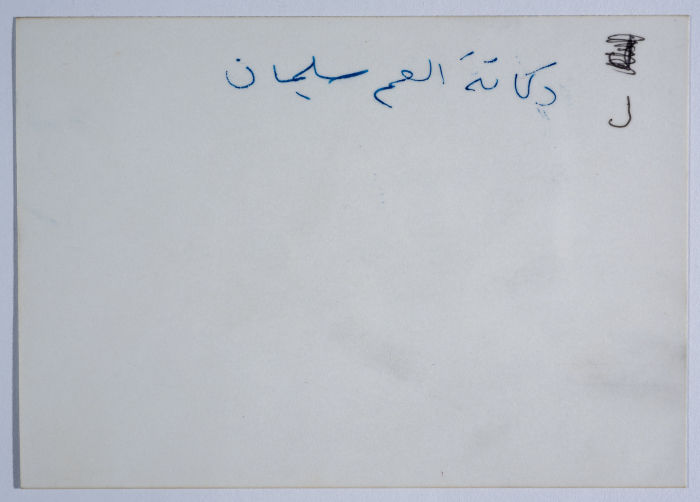 دكانة العم سليمان